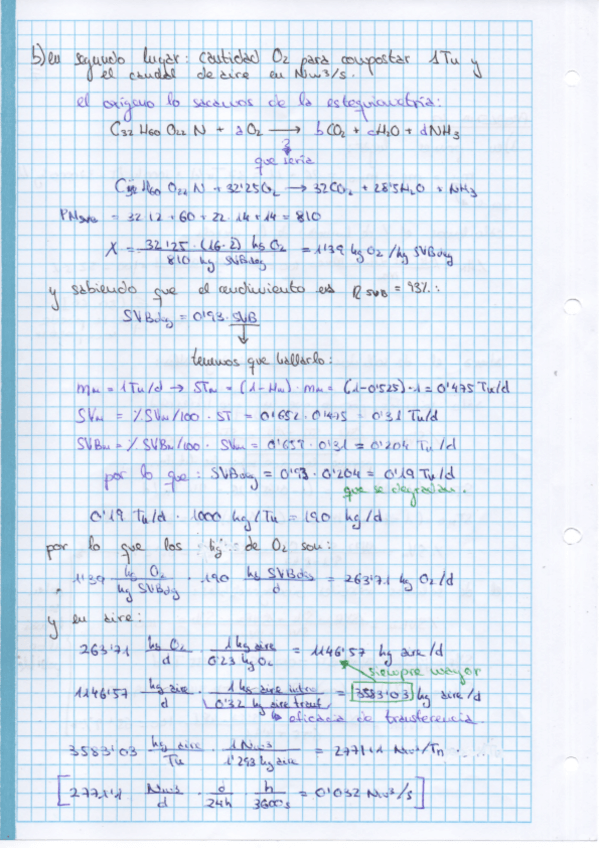 b) en segundo lugar: cantidad O₂ para compostar 1Tn y
el caudal de aire en Nm³/s.
el oxígeno lo sacamos de la estequiometría:
C₃₂ H₆₀ O₂₂ N + aO₂ → bCO₂ + cH₂O + dNH₃
que sería
C₃₂ H₆₀ O₂₂ N + 32'25O₂ → 32CO₂ + 28'5H₂O + NH₃
= 32·12 + 60 + 22·14 + 14 = 810
X = 32'25 · (16·2) kg O₂ / 810 kg SVBdeg = 1'139 kg O₂ / kg SVBdeg
y sabiendo que el rendimiento es R SVB = 93%:
SVBdeg = 0'93 · SVB
tenemos que hallarlo:
mm = 1Tn/d → STm = (1-Hm) · mm = (1-0'525) · 1 = 0'475 Tn/d
SVm = %SVm/100 · ST = 0'652 · 0'475 = 0'31 Tn/d
SVBm = %SVBm/100 · SVm = 0'657 · 0'31 = 0'204 Tn/d
por lo que: SVBdeg = 0'93 · 0'204 = 0'19 Tn/d
que se degradan.
0'19 Tn/d · 1000 kg/Tn = 190 kg/d
por lo que los "kg" de O₂ son:
1'139 kg O₂ / kg SVBdeg · 190 kg SVBdeg / d = 263'71 kg O₂/d
y en aire:
263'71 kg O₂ / d · 1 kg aire / 0'23 kg O₂ = 1146'57 kg aire/d
siempre mayor
1146'57 kg aire / d · 1 kg aire intro / 0'32 kg aire transf = 3583'03 kg aire/d
↳ eficacia de transferencia.
3583'03 kg aire / Tn · 1 Nm³ / 1'293 kg aire = 2771'1 Nm³/Tn.
[2771'1 Nm³ / d · d / 24h · h / 3600s = 0'032 Nm³/s]